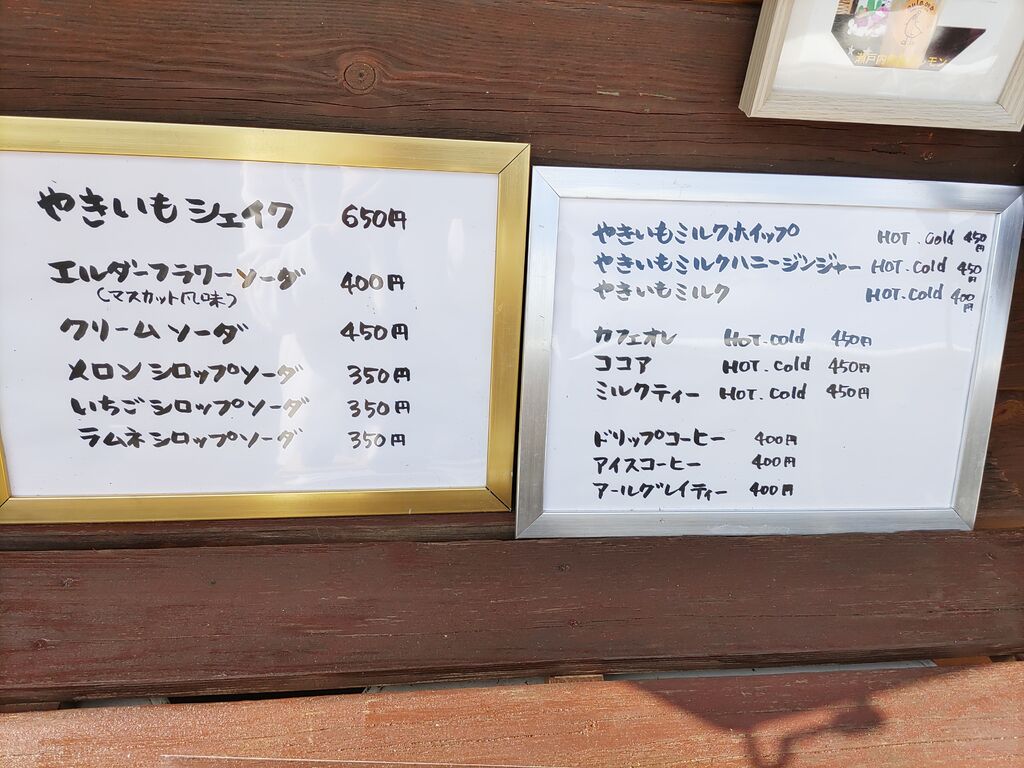 やきいもシェイク 650円
エルダーフラワーソーダ 400円
(マスカット風味)
クリームソーダ 450円
メロンシロップソーダ 350円
いちごシロップソーダ 350円
ラムネシロップソーダ 350円
やきいもミルクホイップ HOT.Cold 450円
やきいもミルクハニージンジャー HOT.Cold 450円
やきいもミルク HOT.Cold 400円
カフェオレ HOT.Cold 450円
ココア HOT.Cold 450円
ミルクティー HOT.Cold 450円
ドリップコーヒー 400円
アイスコーヒー 400円
アールグレイティー 400円